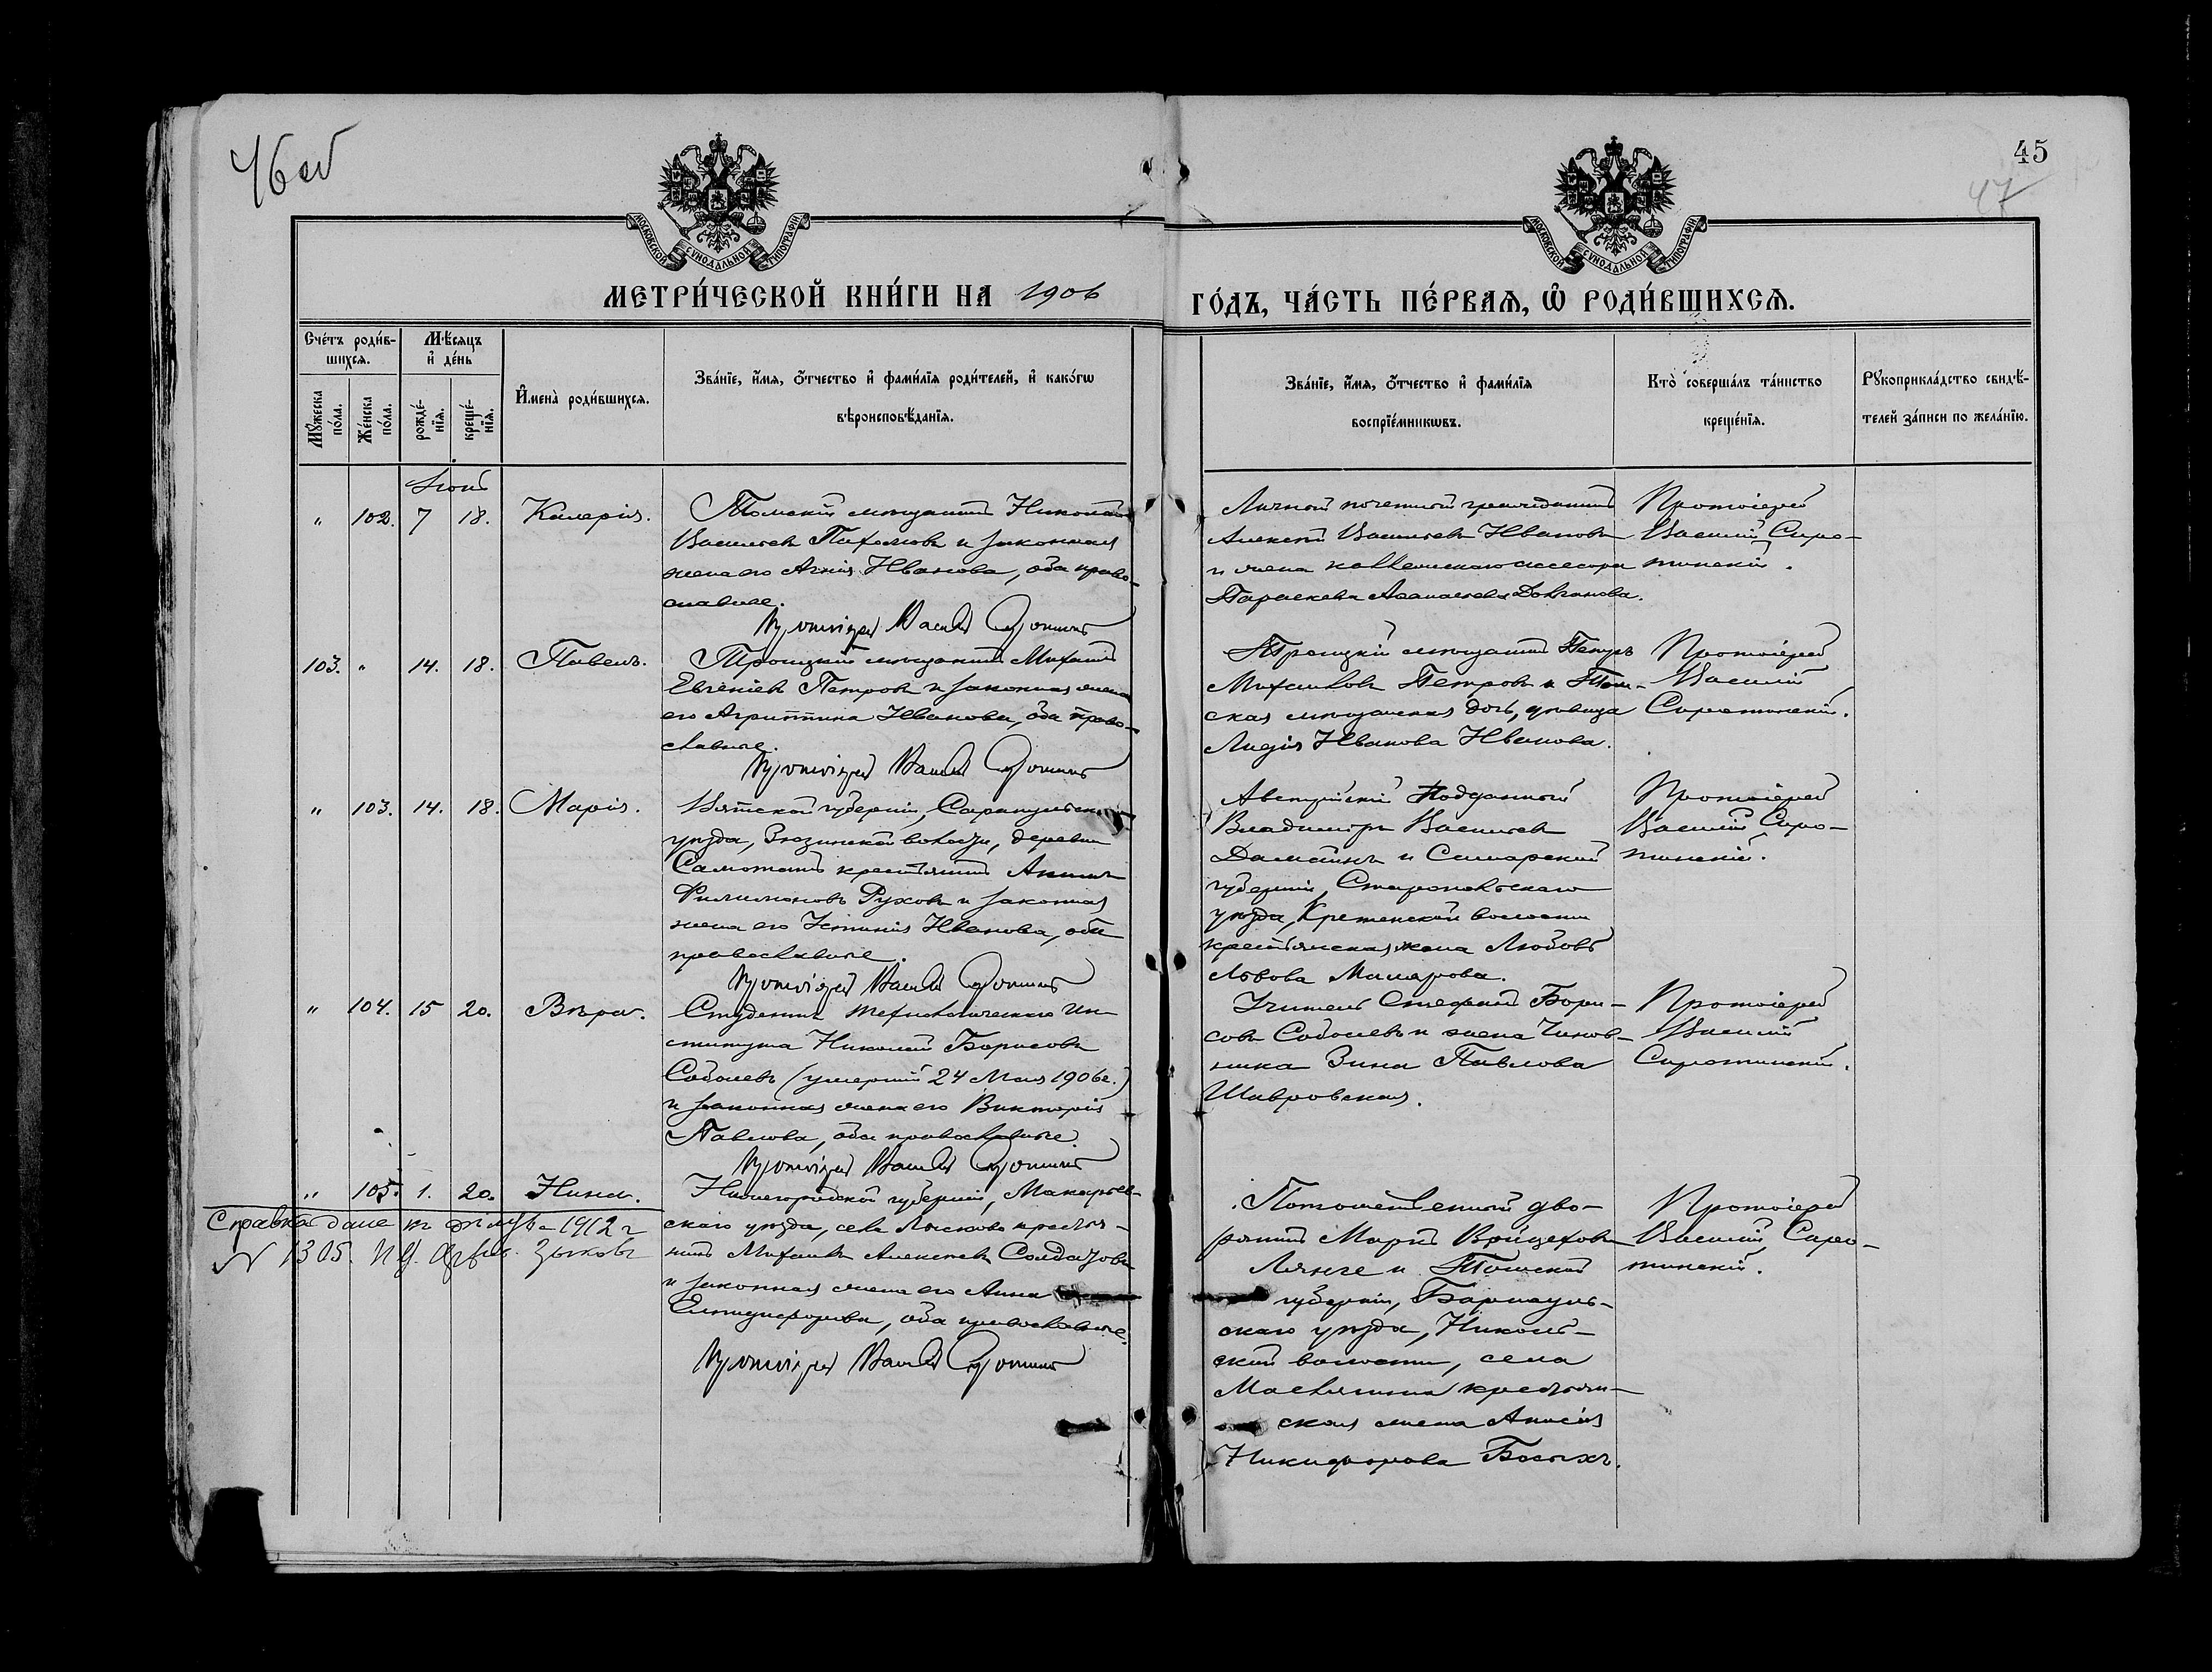 46 об
45
47
МОСКОВСКОЙ СѴНОДАЛЬНОЙ ТИПОГРАФІИ
МОСКОВСКОЙ СѴНОДАЛЬНОЙ ТИПОГРАФІИ
МЕТРИ́ЧЕСКОЙ КНИ́ГИ НА 1906
ГО́ДЪ, ЧА́СТЬ ПЕ́РВАѦ, Ѡ҆ РОДИ́ВШИХСѦ.
Сче́тъ роди́в-
шихсѧ.
Мѣ́сѧцъ
и҆ де́нь
Мꙋ́жеска
по́ла.
Же́нска
по́ла.
рожде́-
нїѧ.
креще́-
нїѧ.
И҆мена̀ роди́вшихсѧ.
Зва́нїе, и҆́мѧ, ѻ҆́тчество и҆ фами́лїѧ роди́телей, и҆ како́гѡ
вѣроисповѣ́данїѧ.
Зва́нїе, и҆́мѧ, ѻ҆́тчество и҆ фами́лїѧ
воспрїе́мникѡвъ.
Кто̀ соверша́лъ та́инство
креще́нїѧ.
Рꙋкоприкла́дство свидѣ́-
телей за́писи по жела́нїю.
Іюнь
„ 102. 7 18. Калерія.
Томскій мѣщанинъ Николай
Васильевъ Пахомовъ и законная
жена его Агнія Иванова, оба право-
славные.
Протоіерей Василій Сиротинскій
Личный почетный гражданинъ
Алексѣй Васильевъ Ивановъ
и жена коллежскаго ассесора
Параскева Аѳанасьева Долганова.
Протоіерей
Василій Сиро-
тинскій.
103. „ 14. 18. Павелъ.
Троицкій мѣщанинъ Михаилъ
Евгеніевъ Петровъ и законная жена
его Агриппина Иванова, оба право-
славные.
Протоіерей Василій Сиротинскій
Троицкій мѣщанинъ Петръ
Михайловъ Петровъ и Том-
ская мѣщанская дочь, дѣвица
Лидія Иванова Иванова.
Протоіерей
Василій
Сиротинскій.
„ 103. 14. 18. Марія.
Вятской губерніи, Сарапульскаго
уѣзда, волости, деревни
крестьянинъ
Филимоновъ Руховъ и законная
жена его Устинія Иванова, оба
православные.
Протоіерей Василій Сиротинскій
Австрійскій подданный
Владимiръ Васильевъ
и Самарской
губерніи, Ставропольскаго
уѣзда, волости
крестьянская жена Любовь
Львова
Протоіерей
Василій Сиро-
тинскій.
„ 104. 15 20. Вѣра.
Студентъ технологическаго Ин-
ститута Николай Борисовъ
Соболевъ (умершій 24 Мая 1906 г.)
и законная жена его Викторія
Павлова, оба православные.
Протоіерей Василій Сиротинскій
Учитель Бори-
совъ Соболевъ и жена Чинов-
ника Зина Павлова
Шавровская.
Протоіерей
Василій
Сиротинскій.
„ 105. 1. 20. Нина.
Нижегородской губерніи, Макарьев-
скаго уѣзда, села Лысково крестья-
нинъ Михаилъ Алексѣевъ Солдатовъ
и законная жена его Анна
Елпидифорова, оба православные.
Протоіерей Василій Сиротинскій
Потомственный дво-
рянинъ Маркъ
Лянге и Томской
губерніи, Барнауль-
скаго уѣзда, Николь-
ской волости, села
Маслянина крестьян-
ская жена Анисія
Никифорова Босыхъ.
Протоіерей
Василій Сиро-
тинскій.
Справка дана 1912 г
N 1305. Зыковъ